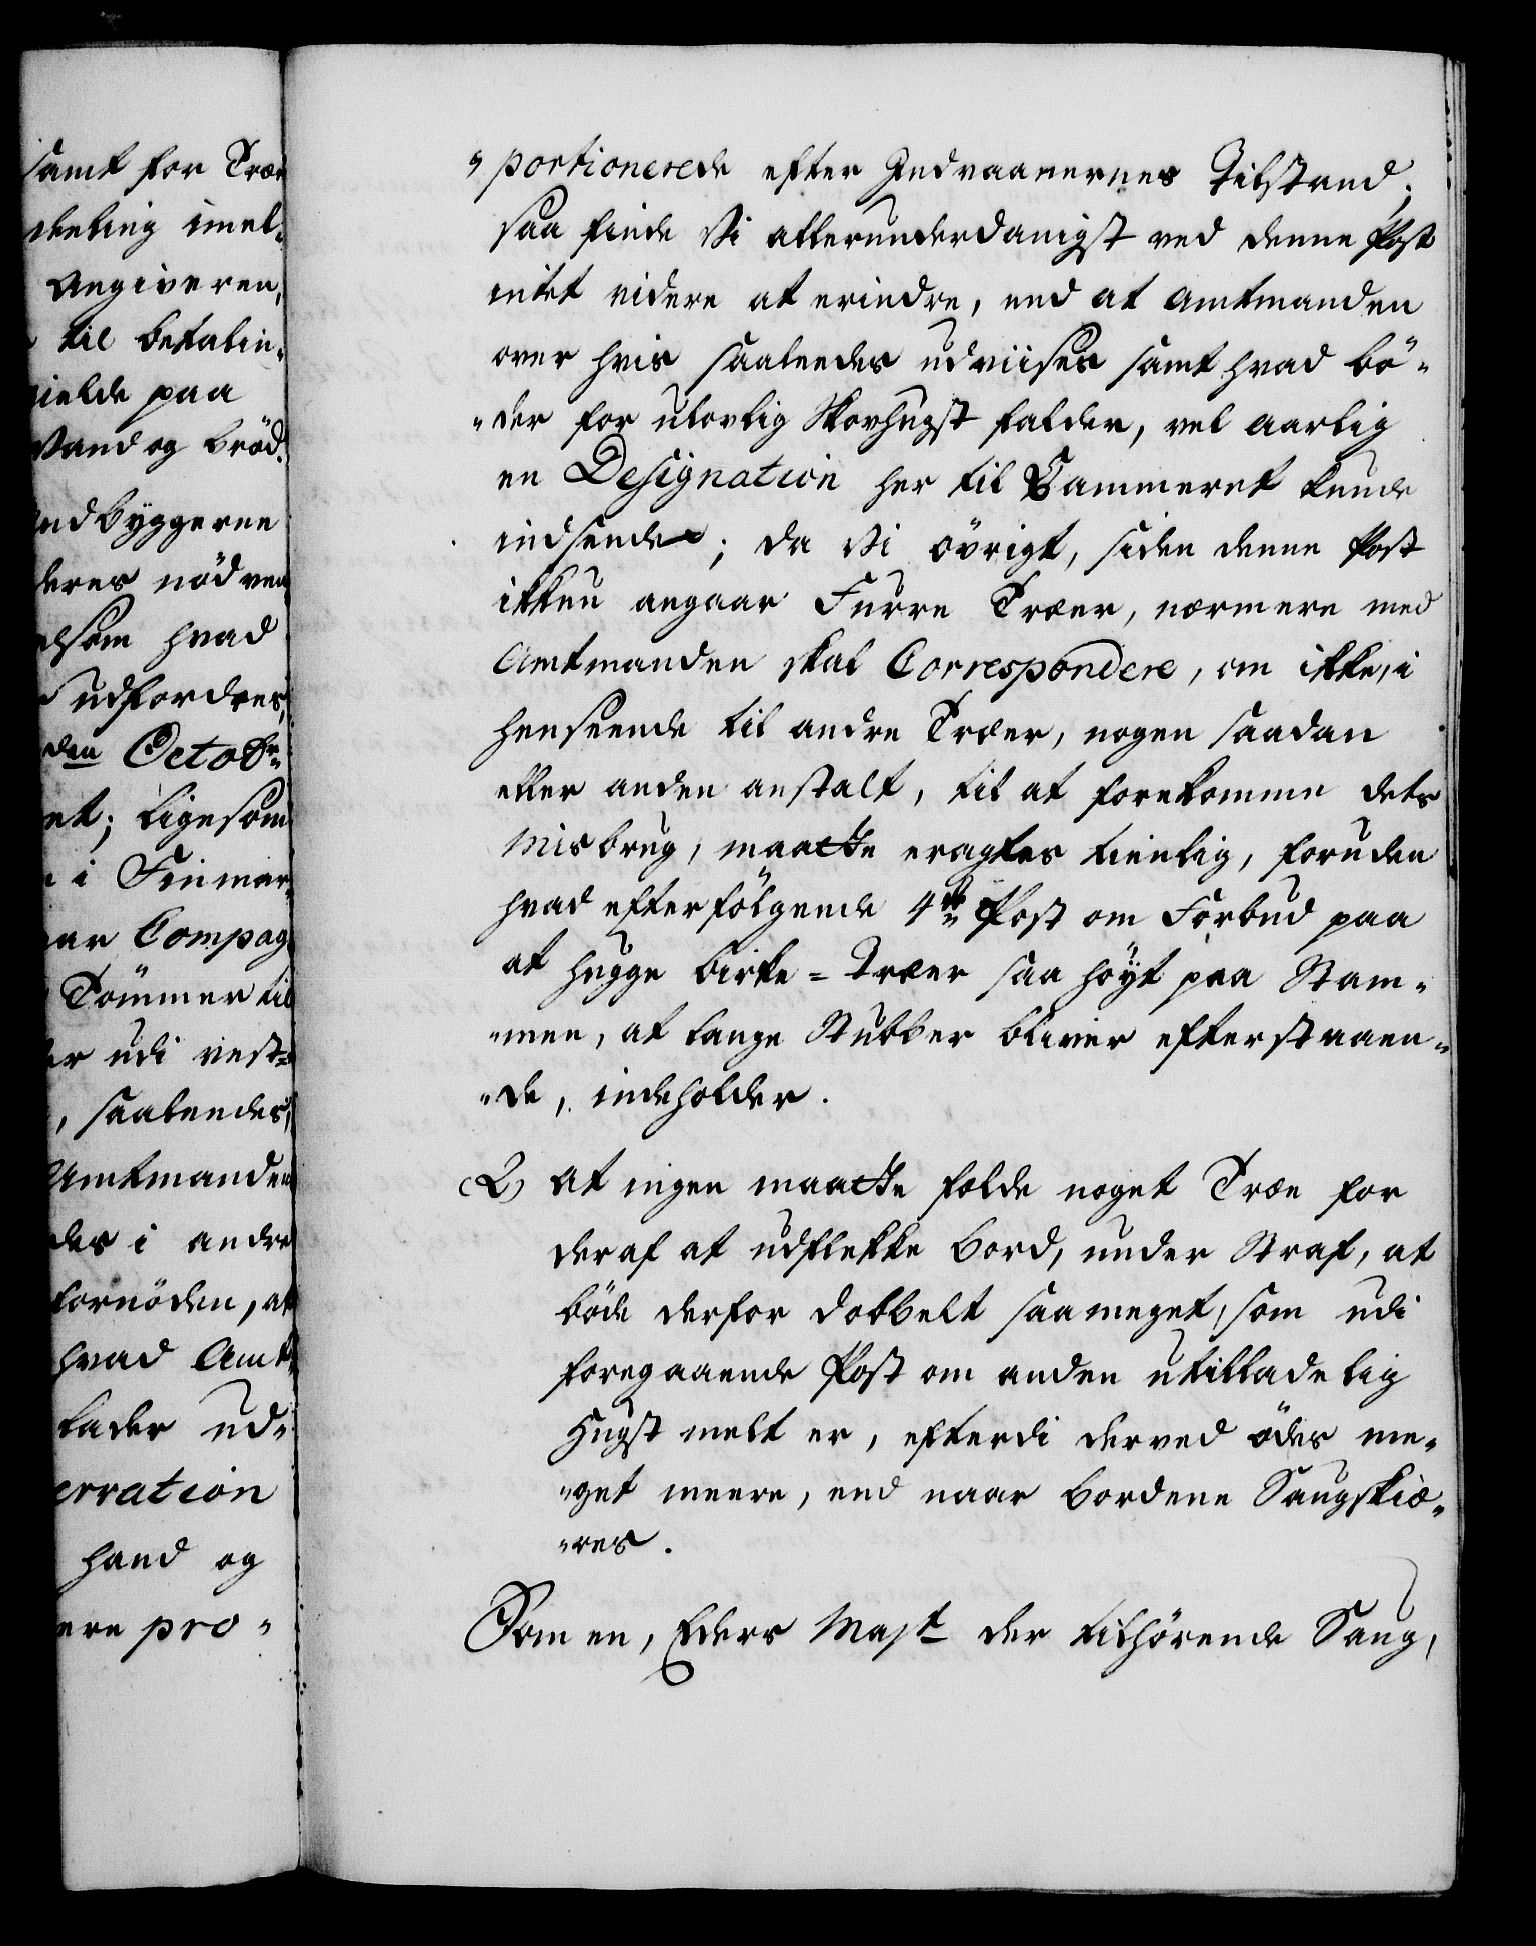 samt for Træ
deling imel-
Angiveren,
til betalin-
gielde paa
Vand og brød.
ndbyggerne
deres nødven
lsom hvad
udfordres,
den Octobr:
et; ligesom
i Finmar-
ar Compag
Tømmer til
er udi vest-
, saaledes,
Amtmanden
des i andre
fornøden, at
hvad Amt
lader ud-
erration
hand og
ere pro-
"portionerede efter Indvaanernes Tilstand;
saa finde Vi allerunderdanigst ved denne Post
intet videre at erindre, end at Amtmanden
over hvis saaleedes udviises samt hvad bö-
"der for ulovlig Skovhugst falder, vel aarlig
en Designation her til Cammeret kunde
indsende; da Vi övrigt, siden denne Post
ikkun angaar Furre Træer, nærmere med
Amtmanden skal Correspondere, om ikke, i
henseende til andre Træer, nogen saadan
eller anden anstalt, til at forekomme dets
Misbrug, maatte eragtes tienlig, foruden
hvad efterfölgende 4de Post om Forbud paa
at hugge birke-Træer saa höyt paa Stam-
"men, at lange Stubber bliver efterstaaen-
"de, indeholder.
(2) At ingen maatte fælde noget Træe for
deraf at udflekke bord, under Straf, at
böde derfor dobbelt saameget, som udi
foregaaende Post om anden utilladelig
Hugst melt er, efterdi derved ödes me-
"get meere, end naar bordene Saugskiæ-
"res.
Som en, Eders Majt der tilhörende Saug,